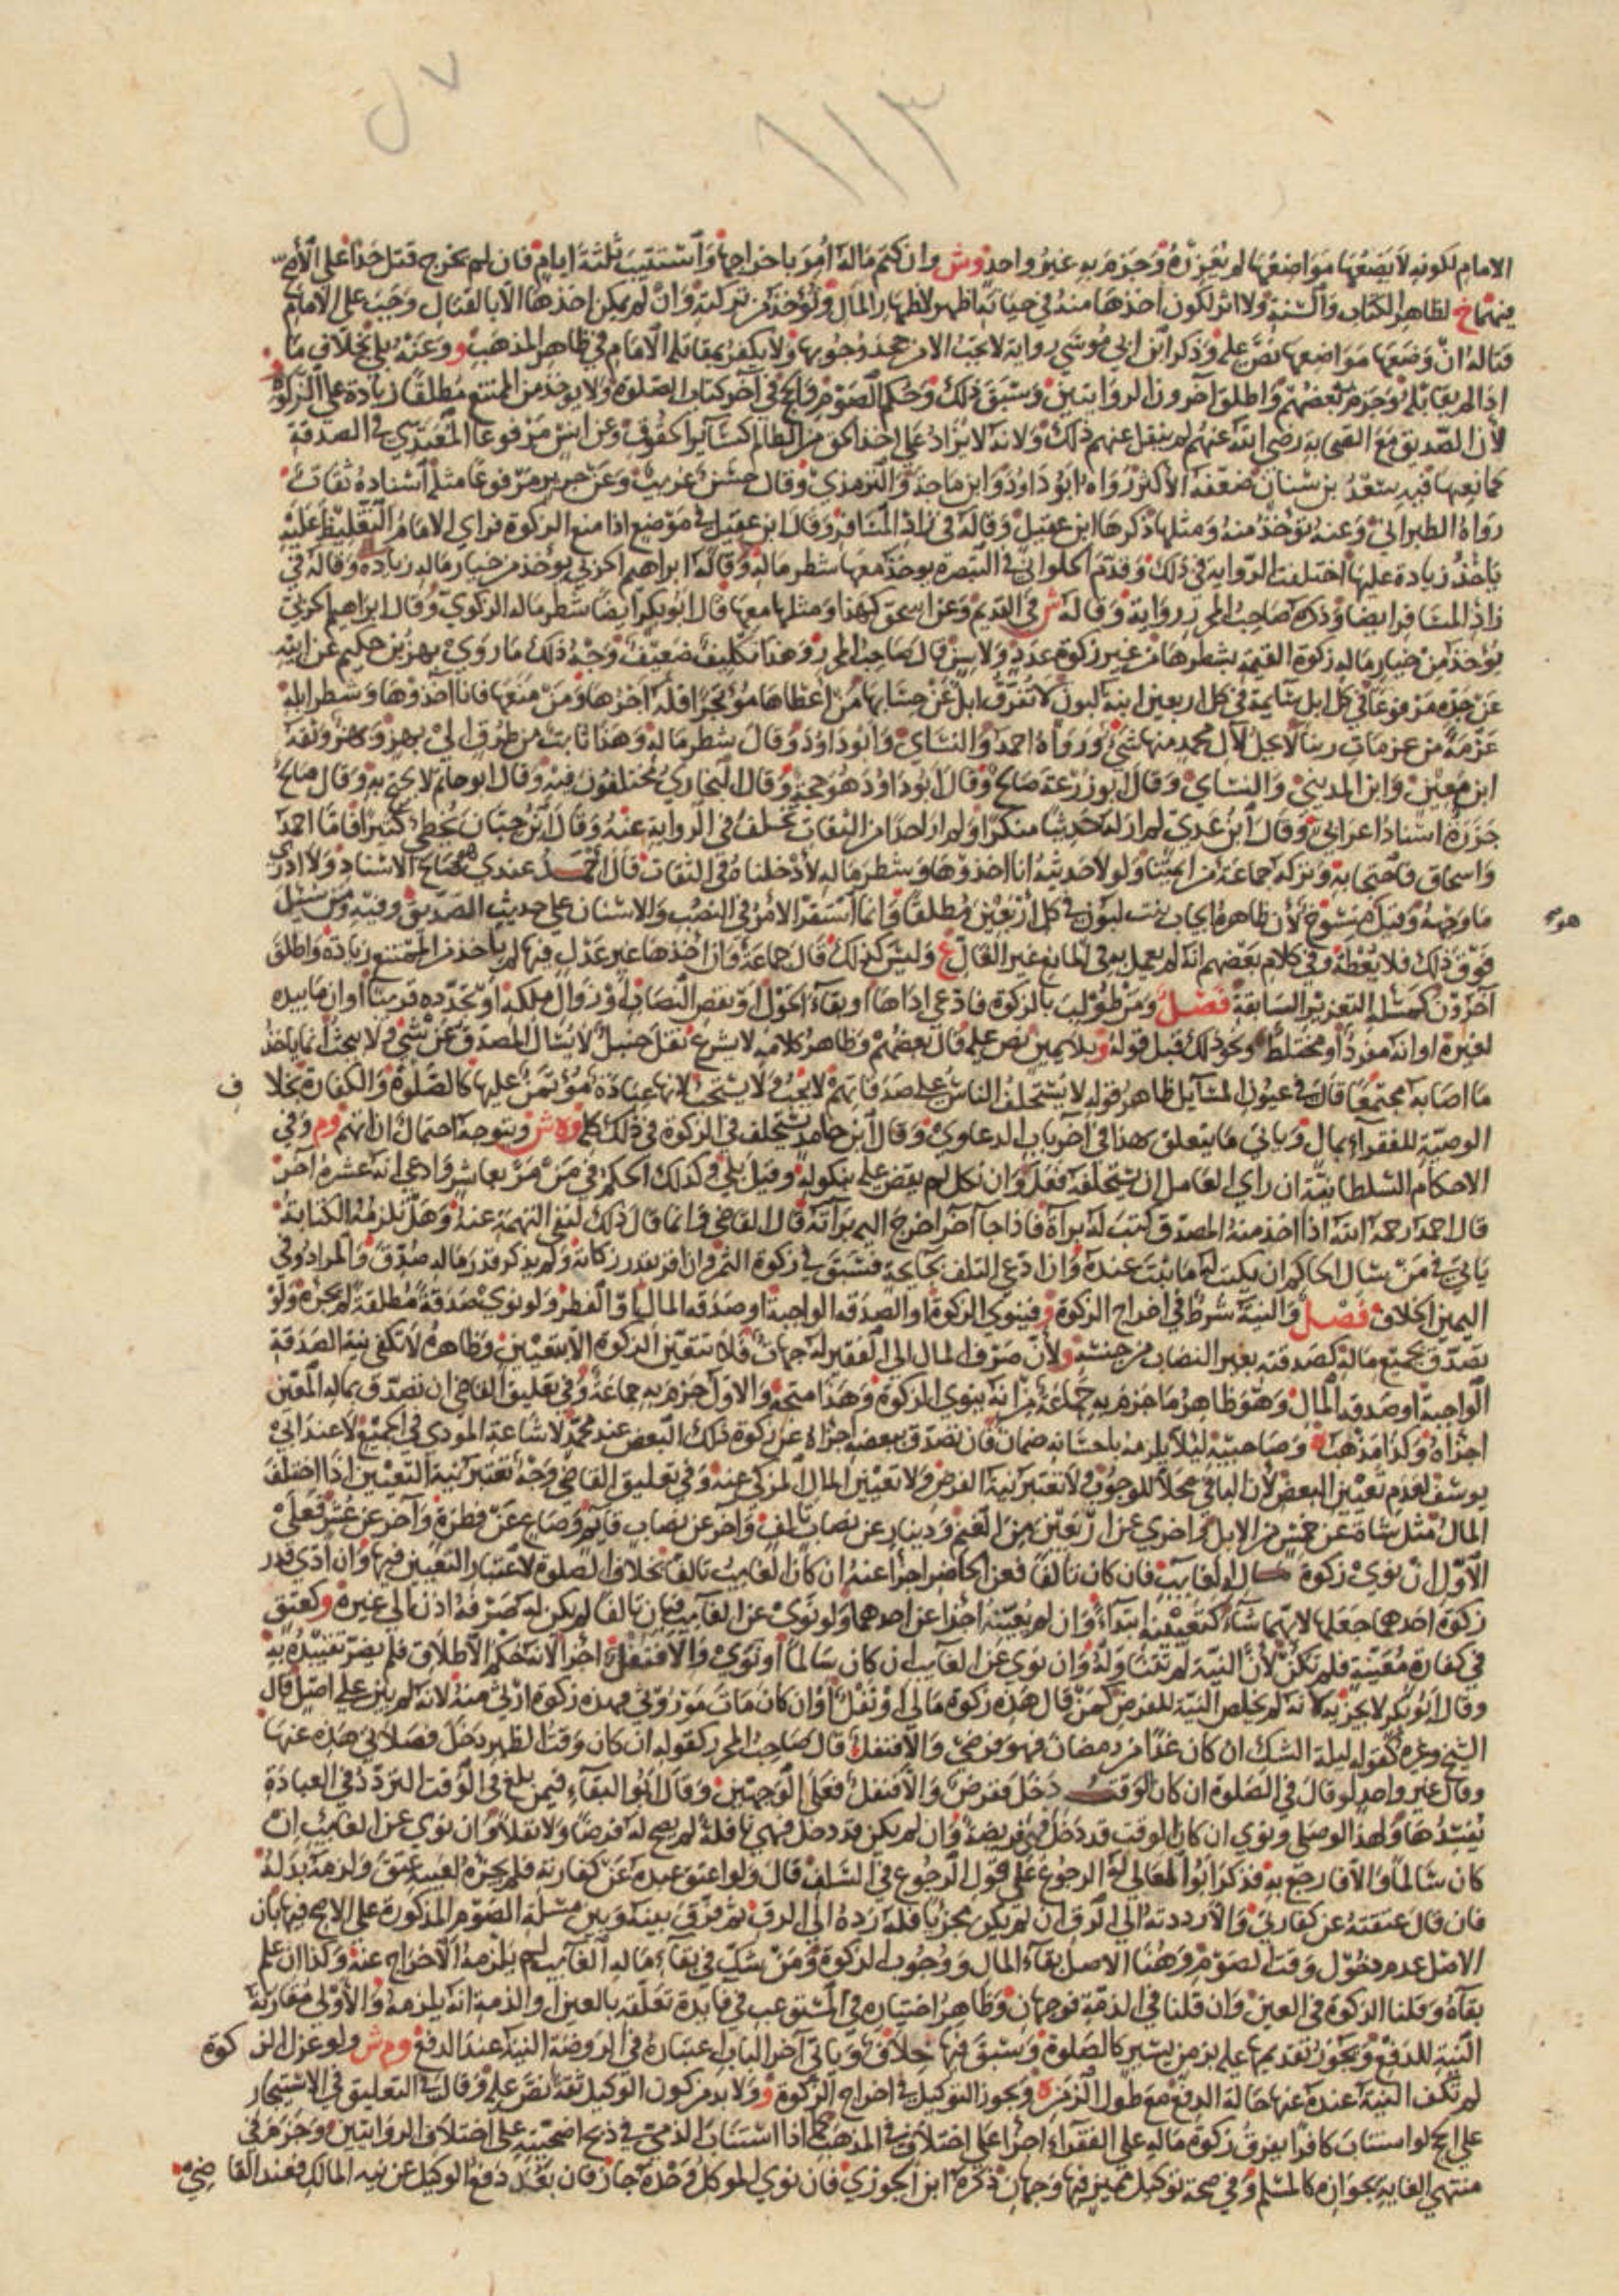 ١١٣
الامام لكونه لا يضعها مواضعها لم يعزره وجزم به غير واحد وش وان كتم ماله امر باخراجها واستتيب ثلثة ايام فان لم يخرج قتل حدا على الاصح
فيهما خ لظاهر الكتاب والسنة ولا اثر لكون اخذها منه في حياته اظهر لاظهار المال وتؤخذ من تركته وان لم يمكن اخذها الا بالقتال وجب على الامام
قتاله ان وضعها مواضعها نص عليه وذكر ابن ابي موسى رواية لا يجب الا من جحد وجوبها ولا يكفر بمقاتلة الامام في ظاهر المذهب و وعنه بلى بخلاف ما
اذا لم يقاتله وجزم به بعضهم واطلق آخرون الروايتين وسبق ذلك وحكم الصوم والحج في آخر كتاب الصلوة ولا يوخذ من الممتنع مطلقا زيادة على الزكوة
لان الصديق مع الصحابة رضي الله عنهم لم ينقل عنهم ذلك ولانه لا يزاد على اخذ الحق من الظالم كسائر الحقوق وعن انس مرفوعا المعتدي في الصدقة
كمانعها فيه سعد بن سنان ضعفه الاكثر رواه ابو داود وابن ماجة والترمذي وقال حسن غريب وعن جرير مرفوعا مثله اسناده ثقات
رواه الطبراني وعنه تؤخذ منه ومثلها ذكرها ابن عقيل وقاله في زاد المسافر وقال ابن عقيل في موضع اذا منع الزكوة فراى الامام التغليظ عليه
ياخذ زيادة عليها اختلفت الرواية في ذلك وقدم الحلواني في التبصرة يوخذ معها شطر ماله وقاله ابراهيم الحربي يؤخذ من خيار ماله زيادة وقاله في
زاد المسافر ايضا وذكره صاحب المحرر رواية وقاله ش في القديم وعن اسحق كهذا ومثلها معها قال ابو بكر ايضا شطر ماله الزكوي وقال ابراهيم الحربي
يؤخذ من خيار ماله زكوة القيمة بشطرها من غير زكوة عدد ولا سن قال صاحب المحرر وهذا تكليف ضعيف وجه ذلك ما روى بهز بن حكيم عن ابيه
عن جده مرفوعا في كل ابل سائمة في كل اربعين ابنة لبون لا تفرق ابل عن حسابها من اعطاها مؤتجرا فله اجرها ومن منعها فانا آخذوها وشطر ابله
عزمة من عزمات ربنا لا يحل لآل محمد منها شيء ورواه احمد والنساي وابو داود وقال شطر ماله وهذا ثابت من طرق الى بهز وبهز وثقه
ابن معين وابن المديني والنساي وقال ابو زرعة صالح وقال ابو داود هو حجة وقال البخاري مختلفون فيه وقال ابو حاتم لا يحتج به وقال صالح
جزرة اسناد اعرابي وقال ابن عدي لم ار له حديثا منكرا ولم ار احدا من الثقات تخلف في الرواية عنه وقال ابن حبان يخطئ كثيرا فاما احمد
واسحاق فاحتجا به وتركه جماعة من ايمتنا ولولا حديثه انا آخذوها وشطر ماله لادخلناه في الثقات قال احمد عندي صالح الاسناد ولا ادري
ما وجهه وقيل منسوخ لان ظاهره ايجاب بنت لبون في كل اربعين مطلقا وانما استقر الامر في النصب والاسنان على حديث الصديق وفيه ومن سئل
هو
فوق ذلك فلا يعطه وفي كلام بعضهم انه لم يعمل به في المانع غير الغال ع وليس كذلك قال جماعة وان اخذها غير عدل فيها لم ياخذ من الممتنع زيادة واطلق
آخرون كمسئلة التعزير السابقة فصل ومن طولب بالزكوة فادعى اداها او بقاء الحول او نقص النصاب او زوال ملكه او تجدده قريبا او ان ما بيده
لغيره او انه مفرد او مختلط ونحو ذلك قبل قوله و بلا يمين نص عليه قال بعضهم وظاهر كلامه لا يشرع نقل حنبل لا يسال المصدق عن شيء ولا يبحث انما ياخذ
ما اصابه مجتمعا قال في عيون المسائل ظاهر قوله لا يستحلف الناس على صدقاتهم لا يجب ولا يستحب لانها عبادة مؤتمن عليها كالصلوة والكفارة بخلاف
الوصية للفقراء بمال وياتي ما يتعلق بهذا في آخر باب الدعاوي وقال ابن حامد يستحلف في الزكوة في ذلك كله وه ش ويتوجه احتمال ان اتهم وم وفي
الاحكام السلطانية ان راى العامل ان يستحلفه فعل وان نكل لم يقض عليه بنكوله وقيل بلى وكذلك الحكم في من مر بعاشر وادعى انه عشره آخر
قال احمد رحمه الله اذا اخذ منه المصدق كتب له براة فاذا جا آخر اخرج اليه براته قال القاضي وانما قال ذلك لنفي التهمة عنه وهل تلزمه الكتابة
ياتي في من سال الحاكم ان يكتب له ما ثبت عنده وان ادعى التلف بجايحة فسبق في زكوة الثمر وان اقر بقدر زكاته ولم يذكر قدر ماله صدق والمراد وفي
اليمين الخلاف فصل والنية شرط في اخراج الزكوة و فينوي الزكوة او الصدقه الواجبة او صدقه المال او الفطر ولو نوى صدقة مطلقة لم يجزه ولو
تصدق بجميع ماله كصدقته بغير النصاب من جنسه ولان صرف المال الى الفقير له جهات فلا تتعين الزكوة الا بتعيين وظاهره لا تكفي نية الصدقة
الواجبة او صدقة المال وهو ظاهر ما جزم به جماعة من انه ينوي الزكوة وهذا متجه والاول جزم به جماعة وفي تعليق القاضي ان تصدق بماله المعين
اجزاه وكذا مذهب ه وصاحبيه ليلا يلزمه باحسانه ضمان فان تصدق ببعضه اجزاه عن زكوة ذلك البعض عند محمد لاشاعة المودى في الجميع لا عند ابي
يوسف لعدم تعيين البعض لان الباقي محلا للوجوب ولا تعتبر نية الفرض ولا تعيين المال المزكى عنه وفي تعليق القاضي وجه تعتبر نية التعيين اذا اختلف
المال مثل شاة عن خمس من الابل واخرى عن اربعين من الغنم ودينار عن نصاب تالف وآخر عن نصاب قايم وصاع عن فطرة وآخر عن عشر فعلى
الاول ان نوى زكوة ماله الغايب فان كان تالفا فعن الحاضر اجزا عنه ان كان الغايب تالفا بخلاف الصلوة لاعتبار التعيين فيها وان ادى قدر
زكوة احدهما جعلها لايهما شاء كتعيينه ابتداء وان لم يعينه اجزا عن احدهما ولو نوى عن الغايب فبان تالفا لم يكن له صرفه الى غيره وكعتق
في كفارة معينة فلم تكن لان النية لم تتناوله وان نوى عن الغايب ان كان سالما او نوى والا فنفل اجزا لانه حكم الاطلاق فلم يضر تقييده به
وقال ابو بكر لا يجزيه لانه لم يخلص النية للفرض كمن قال هذه زكوة مالي او نفل او ان كان مات موروثي فهذه زكوة ارثي منه لانه لم يبن على اصل قال
الشيخ وغيره كقوله ليلة الشك ان كان غدا من رمضان فهو فرضي والا فنفل قال صاحب المحرر كقوله ان كان وقت الظهر دخل فصلاتي هذه عنها
وقال غير واحد لو قال في الصلوة ان كان الوقت دخل ففرض والا فنفل فعلى الوجهين وقال ابو البقاء فيمن بلغ في الوقت التردد في العبادة
يفسدها ولهذا لو صلى ونوى ان كان الوقت قد دخل فهي فريضة وان لم يكن قد دخل فهي نافلة لم يصح له فرضا ولا نفلا وان نوى عن الغايب ان
كان سالما والا فارجع به فذكر ابو المعالي له الرجوع على قول الرجوع في السلف قال ولو اعتق عبده عن كفارته فلم يجزه لعيبه عتق ولزمه بدله
فان قال عتقته عن كفارتي والا رددته الى الرق ان لم يكن مجزيا فله رده الى الرق ثم فرق بينه وبين مسئلة الصوم المذكورة على الاصح فيها بان
الاصل عدم دخول وقت الصوم وهنا الاصل بقاء المال ووجوب الزكوة ومن شك في بقاء ماله الغايب لم يلزمه الاخراج عنه وكذا ان علم
بقاه وقلنا الزكوة في العين وان قلنا في الذمة فوجهان وظاهر اختياره في المستوعب في فايدة تعلقه بالعين او الذمة انه يلزمه والاولى مقارنة
النية للدفع ويجوز تقديمها عليه بزمن يسير كالصلوة وسبق فيها خلاف وياتي آخر الباب اعتباره في الروضة النية عند الدفع وم ش ولو عزل الزكوة
لم تكف النية عنده عنها حالة الدفع مع طول الزمن ه ويجوز التوكيل في اخراج الزكوة و ولا بد من كون الوكيل ثقة نص عليه وقال في التعليق في الاستيجار
على الحج لو استناب كافرا يفرق زكوة ماله على الفقراء اجزا على اختلاف في المذهب كما اذا استناب الذمي في ذبح اضحيته على اختلاف الروايتين وجزم في
منتهى الغاية بجوازه كالمسلم وفي صحة توكيل مميز فيها وجهان ذكره ابن الجوزي فان نوى الموكل وحده جاز فان بعد دفع الوكيل عن نية المالك فعند القاضي